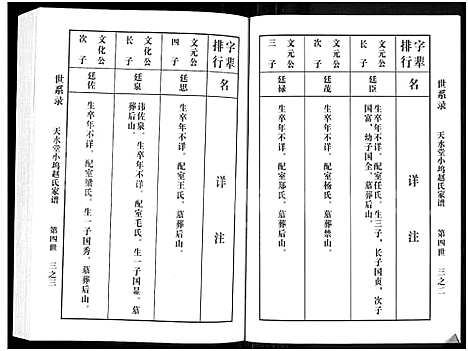 世系录
天水堂小坞赵氏家谱
第四世
三之二
字辈
排行
名
详
注
文元公
长子
廷臣
生卒年不详，配室任氏。生三子，长子国贞，次子
国富，幼子国全，墓葬后山。
文元公
次子
廷茂
生卒年不详，配室杨氏。墓葬禁山。
文元公
三子
廷禄
生卒年不详，配室郑氏，墓葬后山。
字辈
排行
名
详
注
文元公
四子
廷思
生卒年不详，配室王氏，墓葬后山。
文化公
长子
廷泉
讳佐泉，生卒年不详，配室毛氏。生一子国显，墓
葬后山。
文化公
次子
廷佐
生卒年不详，配室梁氏，生一子国秀，墓葬后山。
世系录
天水堂小坞赵氏家谱
第四世
三之三